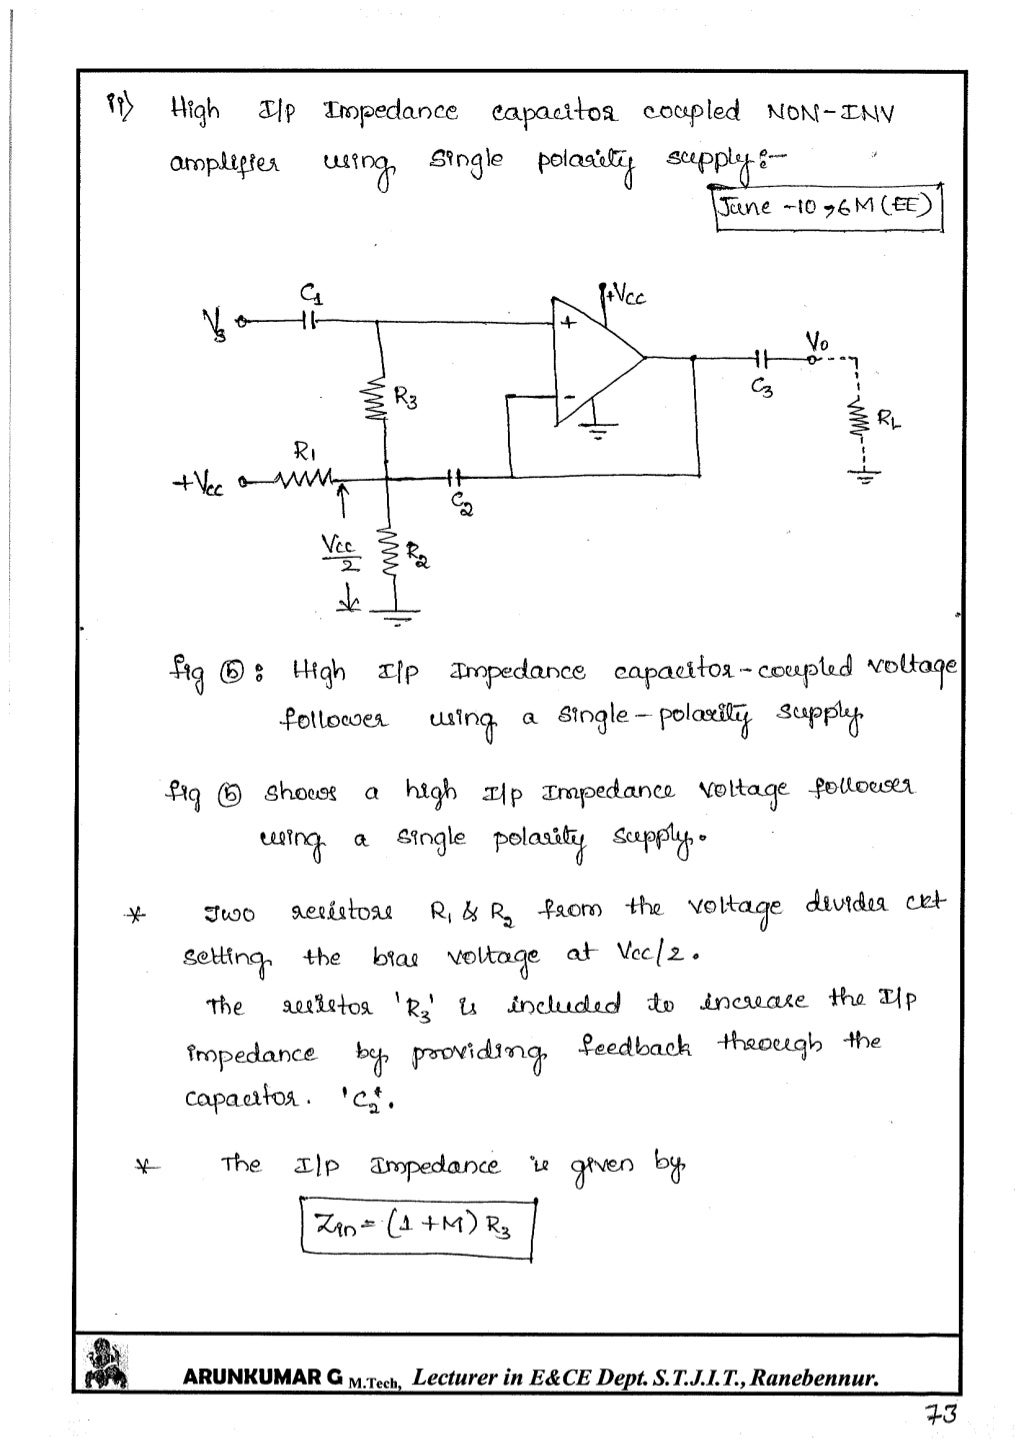 ii) High I/p Impedance capacitor coupled NON-INV
amplifier using single polarity supply:-
June -10, 6M (EE)
C1
+Vcc
Vs
+
Vo
C3
R3
-
RL
R1
+Vcc
C2
Vcc/2
R2
fig (b): High I/p Impedance capacitor-coupled voltage
follower using a single-polarity supply
fig (b) shows a high I/p Impedance voltage follower
using a single polarity supply.
* Two resistors R1 & R2 from the voltage divider ckt
setting the bias voltage at Vcc/2.
The resistor 'R3' is included to increase the I/p
impedance by providing feedback through the
capacitor. 'C2'.
* The I/p Impedance is given by
Zin = (1 + M) R3
ARUNKUMAR G M.Tech, Lecturer in E&CE Dept. S.T.J.I.T., Ranebennur.
73